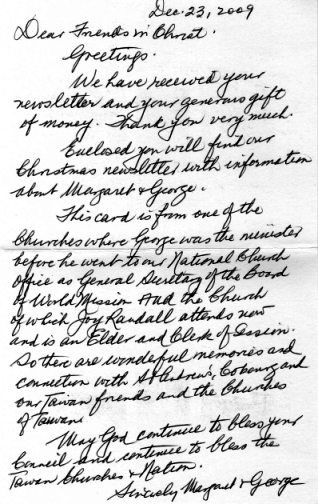 Dec. 23, 2009
Dear Friends in Christ.
Greetings.
We have received your
newsletter and your generous gift
of money. Thank you very much.
Enclosed you will find our
Christmas newsletter with information
about Margaret & George.
This card is from one of the
Churches where George was the minister
before he went to our National Church
office as General Secretary of the Board
of World Mission And the Church
of which Joy Randall attends now
and is an Elder and Clerk of Session.
So there are wonderful memories and
connection with St Andrew's, Cobourg and
our Taiwan friends and the Churches
of Taiwan.
May God continue to bless your
Council and continue to bless the
Taiwan Churches & Nation.
Sincerely Margaret & George